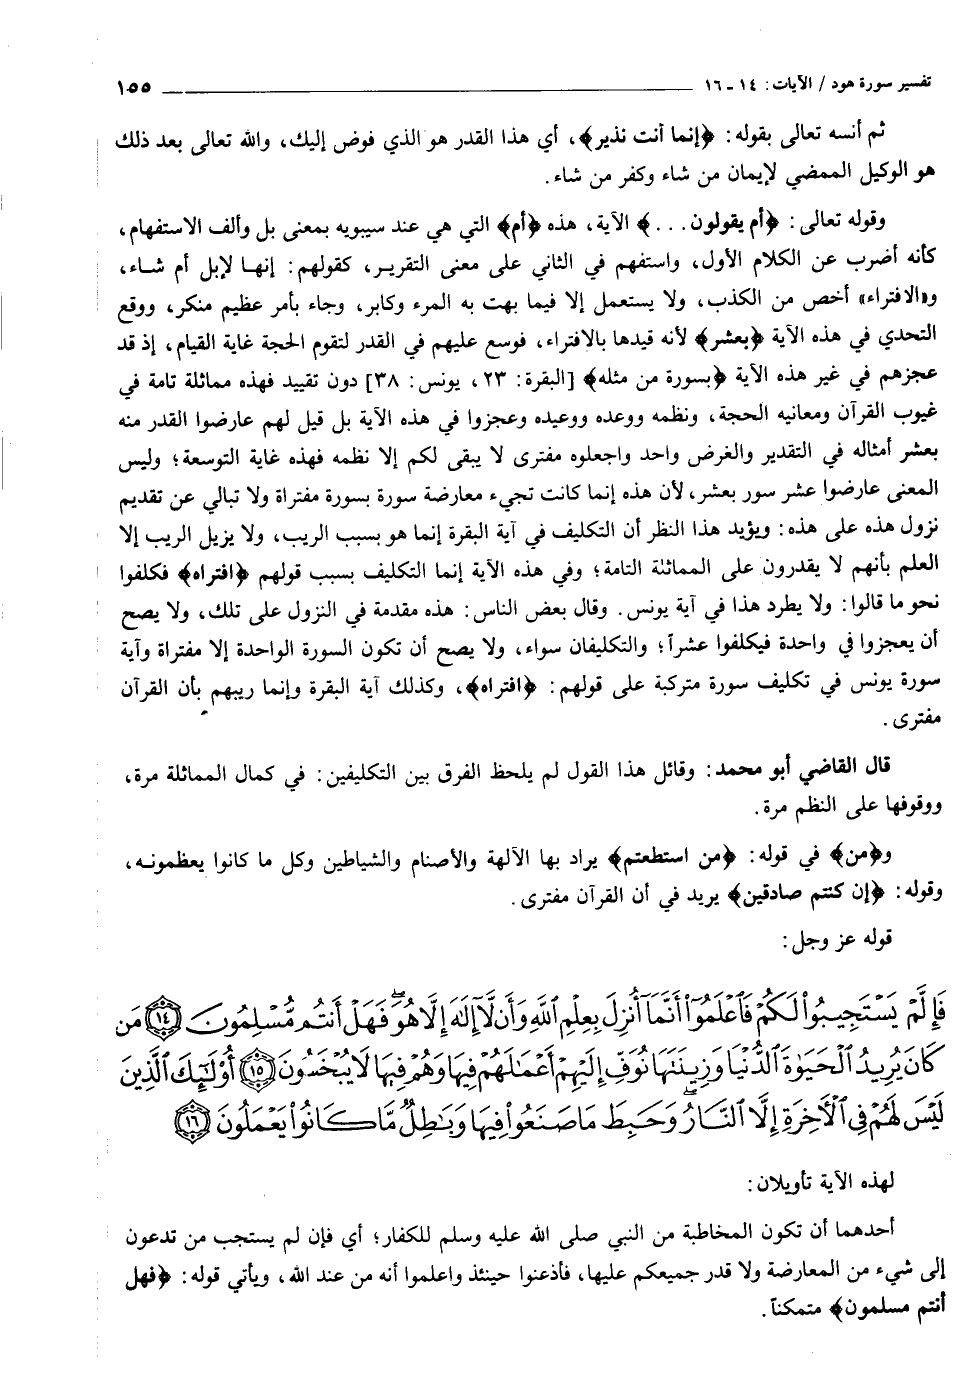 تفسير سورة هود / الآيات: ١٤ ـ ١٦ ١٥٥
ثم أنسه تعالى بقوله: ﴿إنما أنت نذير﴾، أي هذا القدر هو الذي فوض إليك، والله تعالى بعد ذلك
هو الوكيل الممضي لإيمان من شاء وكفر من شاء.
وقوله تعالى: ﴿أم يقولون...﴾ الآية، هذه ﴿أم﴾ التي هي عند سيبويه بمعنى بل وألف الاستفهام،
كأنه أضرب عن الكلام الأول، واستفهم في الثاني على معنى التقرير، كقولهم: إنها لإبل أم شاء،
و«الافتراء» أخص من الكذب، ولا يستعمل إلا فيما بهت به المرء وكابر، وجاء بأمر عظيم منكر، ووقع
التحدي في هذه الآية ﴿بعشر﴾ لأنه قيدها بالافتراء، فوسع عليهم في القدر لتقوم الحجة غاية القيام، إذ قد
عجزهم في غير هذه الآية ﴿بسورة من مثله﴾ [البقرة: ٢٣، يونس: ٣٨] دون تقييد فهذه مماثلة تامة في
غيوب القرآن ومعانيه الحجة، ونظمه ووعده ووعيده وعجزوا في هذه الآية بل قيل لهم عارضوا القدر منه
بعشر أمثاله في التقدير والغرض واحد واجعلوه مفترى لا يبقى لكم إلا نظمه فهذه غاية التوسعة؛ وليس
المعنى عارضوا عشر سور بعشر، لأن هذه إنما كانت تجيء معارضة سورة بسورة مفتراة ولا تبالي عن تقديم
نزول هذه على هذه: ويؤيد هذا النظر أن التكليف في آية البقرة إنما هو بسبب الريب، ولا يزيل الريب إلا
العلم بأنهم لا يقدرون على المماثلة التامة؛ وفي هذه الآية إنما التكليف بسبب قولهم ﴿افتراه﴾ فكلفوا
نحو ما قالوا: ولا يطرد هذا في آية يونس. وقال بعض الناس: هذه مقدمة في النزول على تلك، ولا يصح
أن يعجزوا في واحدة فيكلفوا عشراً؛ والتكليفان سواء، ولا يصح أن تكون السورة الواحدة إلا مفتراة وآية
سورة يونس في تكليف سورة متركبة على قولهم: ﴿افتراه﴾، وكذلك آية البقرة وإنما ريبهم بأن القرآن
مفترى.
قال القاضي أبو محمد: وقائل هذا القول لم يلحظ الفرق بين التكليفين: في كمال المماثلة مرة،
ووقوفها على النظم مرة.
و﴿من﴾ في قوله: ﴿من استطعتم﴾ يراد بها الآلهة والأصنام والشياطين وكل ما كانوا يعظمونه،
وقوله: ﴿إن كنتم صادقين﴾ يريد في أن القرآن مفترى.
قوله عز وجل:
فَإِلَّمْ يَسْتَجِيبُوا۟ لَكُمْ فَٱعْلَمُوٓا۟ أَنَّمَآ أُنزِلَ بِعِلْمِ ٱللَّهِ وَأَن لَّآ إِلَٰهَ إِلَّا هُوَ ۖ فَهَلْ أَنتُم مُّسْلِمُونَ ﴿١٤﴾ مَن
كَانَ يُرِيدُ ٱلْحَيَوٰةَ ٱلدُّنْيَا وَزِينَتَهَا نُوَفِّ إِلَيْهِمْ أَعْمَٰلَهُمْ فِيهَا وَهُمْ فِيهَا لَا يُبْخَسُونَ ﴿١٥﴾ أُو۟لَٰٓئِكَ ٱلَّذِينَ
لَيْسَ لَهُمْ فِى ٱلْأَخِرَةِ إِلَّا ٱلنَّارُ ۖ وَحَبِطَ مَا صَنَعُوا۟ فِيهَا وَبَٰطِلٌ مَّا كَانُوا۟ يَعْمَلُونَ ﴿١٦﴾
لهذه الآية تأويلان:
أحدهما أن تكون المخاطبة من النبي صلى الله عليه وسلم للكفار؛ أي فإن لم يستجب من تدعون
إلى شيء من المعارضة ولا قدر جميعكم عليها، فأذعنوا حينئذ واعلموا أنه من عند الله، ويأتي قوله: ﴿فهل
أنتم مسلمون﴾ متمكناً.